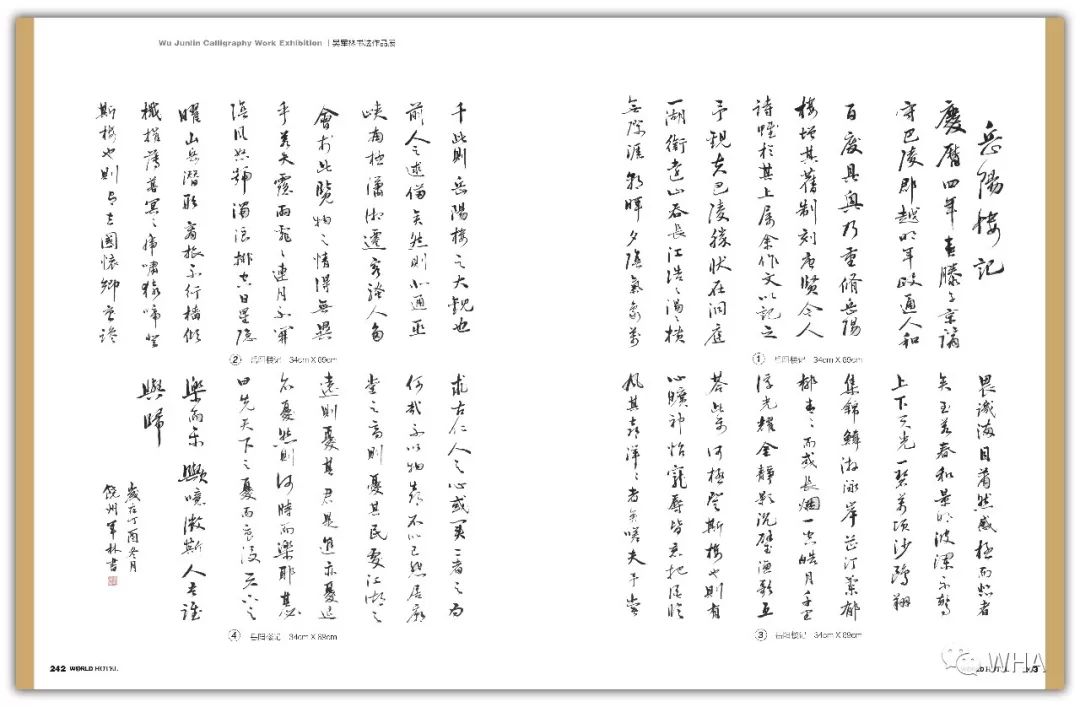 Wu Junlin Calligraphy Work Exhibition | 吴军林书法作品展
岳陽樓記
慶曆四年春滕子京謫
守巴陵郡越明年政通人和
百廢具興乃重脩岳陽
樓增其舊制刻唐賢今人
詩賦於其上屬余作文以記之
予觀夫巴陵勝狀在洞庭
一湖銜遠山吞長江浩〻湯〻橫
無際涯朝暉夕陰氣象萬
① 岳阳楼记 34cm X 89cm
千此則岳陽樓之大觀也
前人之述備矣然則北通巫
峽南極瀟湘遷客騷人多
會於此覽物之情得無異
乎若夫霪雨霏〻連月不開
陰風怒號濁浪排空日星隱
曜山岳潛形商旅不行檣傾
檝摧薄暮冥〻虎嘯猿啼登
斯樓也則有去國懷鄉憂讒
② 岳阳楼记 34cm X 89cm
畏譏滿目蕭然感極而悲者
矣至若春和景明波瀾不驚
上下天光一碧萬頃沙鷗翔
集錦鱗游泳岸芷汀蘭郁
郁青〻而或長煙一空皓月千里
浮光耀金靜影沉璧漁歌互
荅此樂何極登斯樓也則有
心曠神怡寵辱皆忘把酒臨
風其喜洋〻者矣嗟夫予嘗
③ 岳阳楼记 34cm X 89cm
求古仁人之心或異二者之為
何哉不以物喜不以己悲居廟
堂之高則憂其民處江湖之
遠則憂其君是進亦憂退
亦憂然則何時而樂耶其必
曰先天下之憂而憂後天下之
樂而樂歟噫微斯人吾誰
與歸
歲在丁酉冬月
饒州軍林書
④ 岳阳楼记 34cm X 89cm
242 WORLD HOTEL
WHA